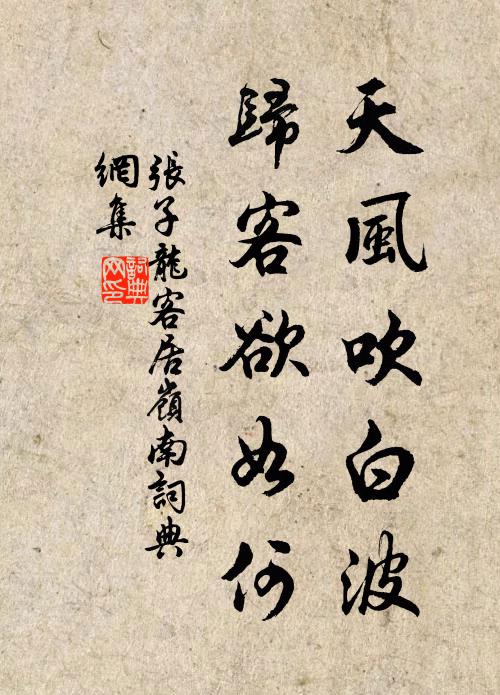 天風吹白波
歸客欲如何
張子龍客居嶺南詞典
網集
詞典網印